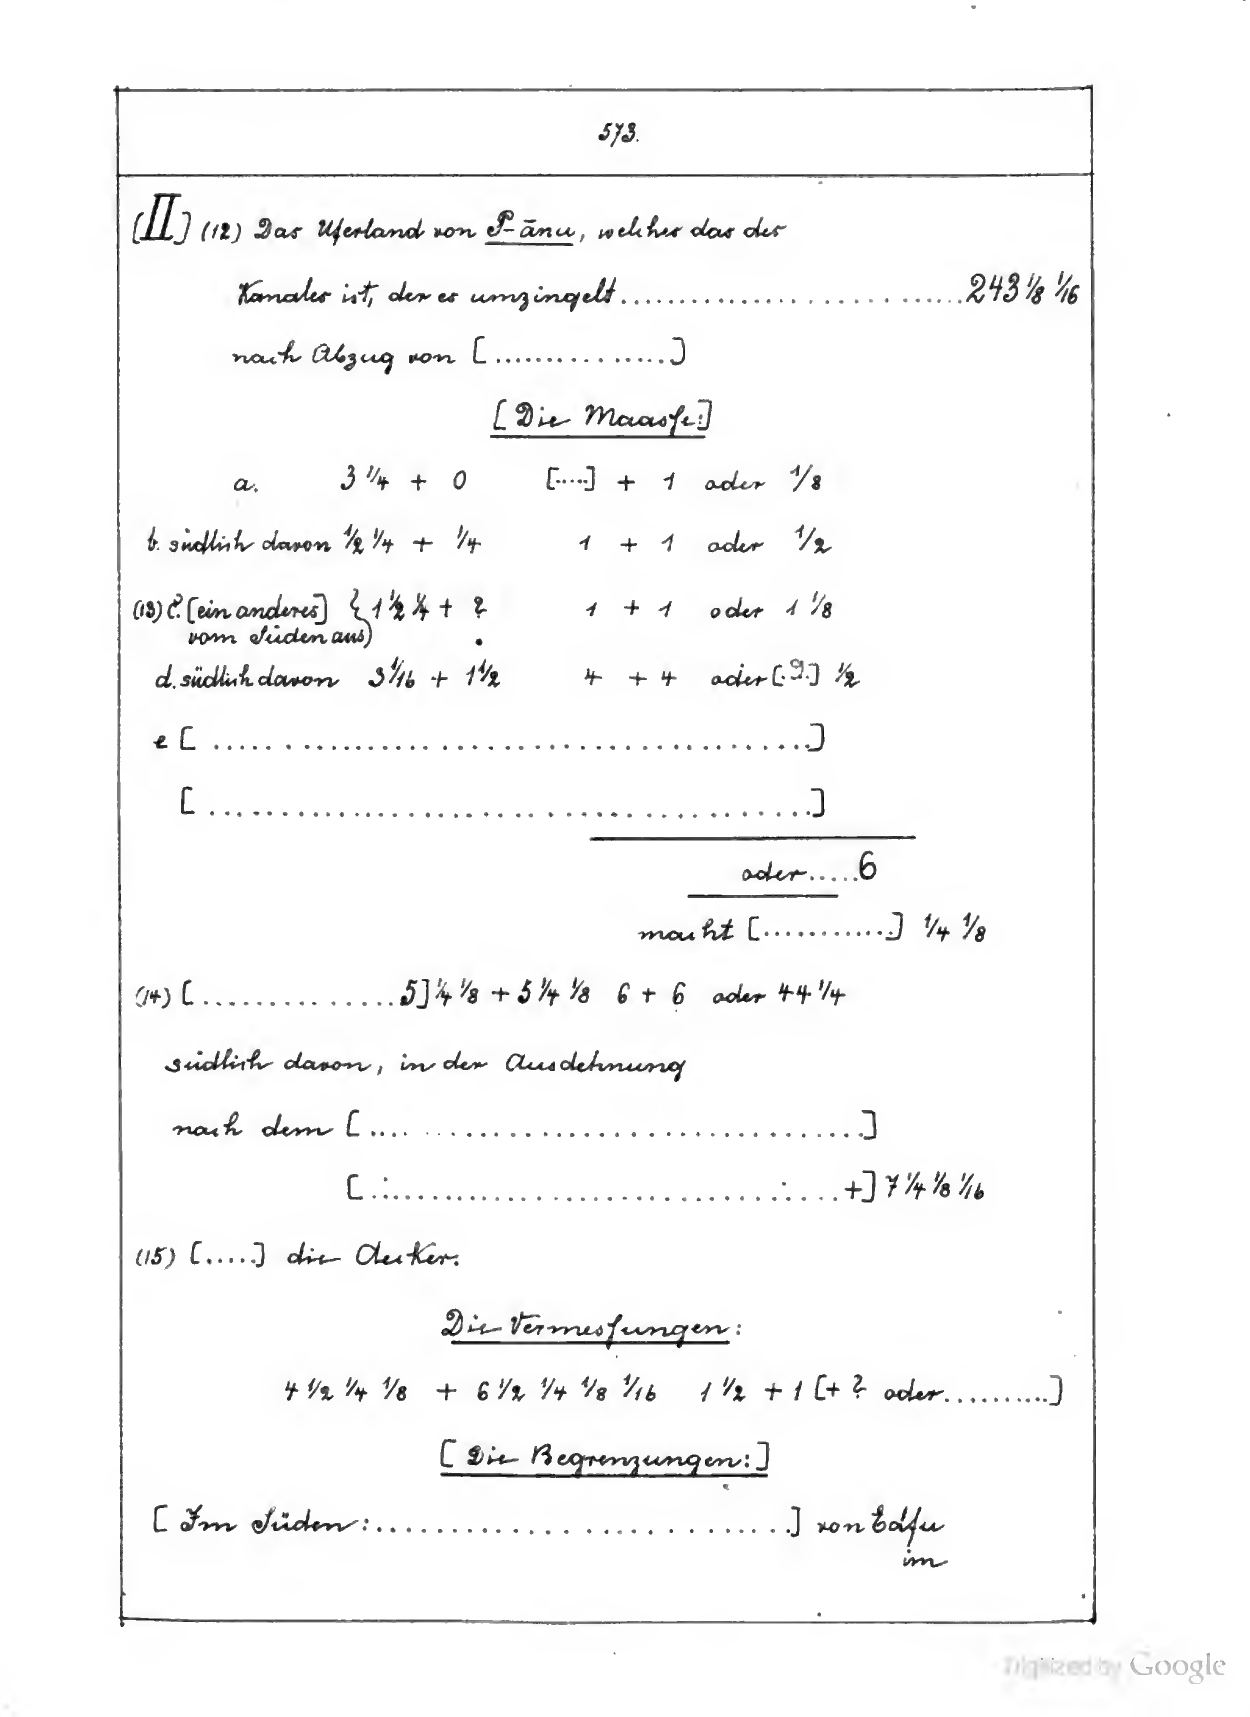 573.
[II] (12) Das Uferland von P-ānu, welches das des
Kanales ist, der es umzingelt.......................... 243 1/8 1/16
nach Abzug von [...............]
[Die Maasse:]
a. 3 1/4 + 0 [.....] + 1 oder 1/8
b. südlich davon 1/2 1/4 + 1/4 1 + 1 oder 1/2
(13) c. [ein anderes] { 1 1/2 1/4 + ? 1 + 1 oder 1 1/8
vom Süden aus)
d. südlich davon 3 1/16 + 1 1/2 4 + 4 oder [.9.] 1/2
e [ ............................................. ]
[ ............................................. ]
oder.....6
macht [............] 1/4 1/8
(14) [............... 5] 1/4 1/8 + 5 1/4 1/8 6 + 6 oder 44 1/4
südlich davon, in der Ausdehnung
nach dem [....................................]
[....................................+] 7 1/4 1/8 1/16
(15) [.....] die Aecker.
Die Vermessungen:
4 1/2 1/4 1/8 + 6 1/2 1/4 1/8 1/16 1 1/2 + 1 [+ ? oder..........]
[Die Begrenzungen:]
[Im Süden:...........................] von Edfu
im
Digitized by Google